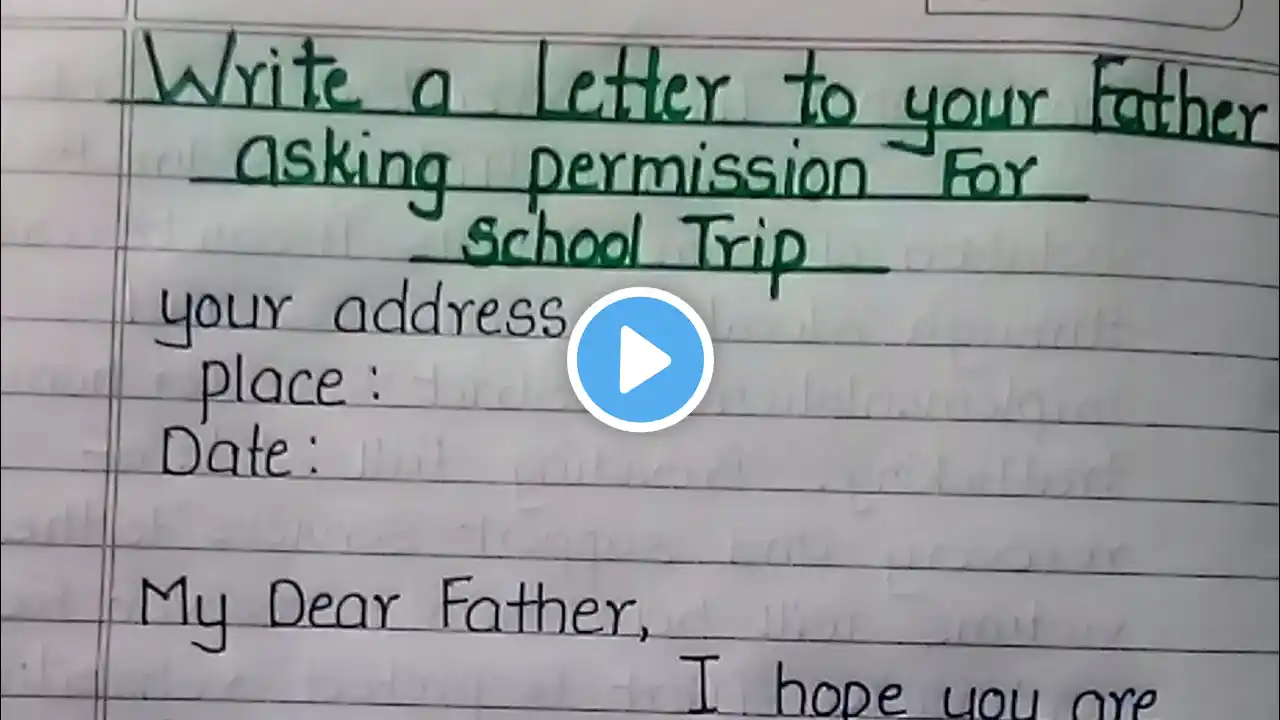 Write a Letter to your Father
asking permission For
School Trip
your address
place:
Date:
My Dear Father,
I hope you are